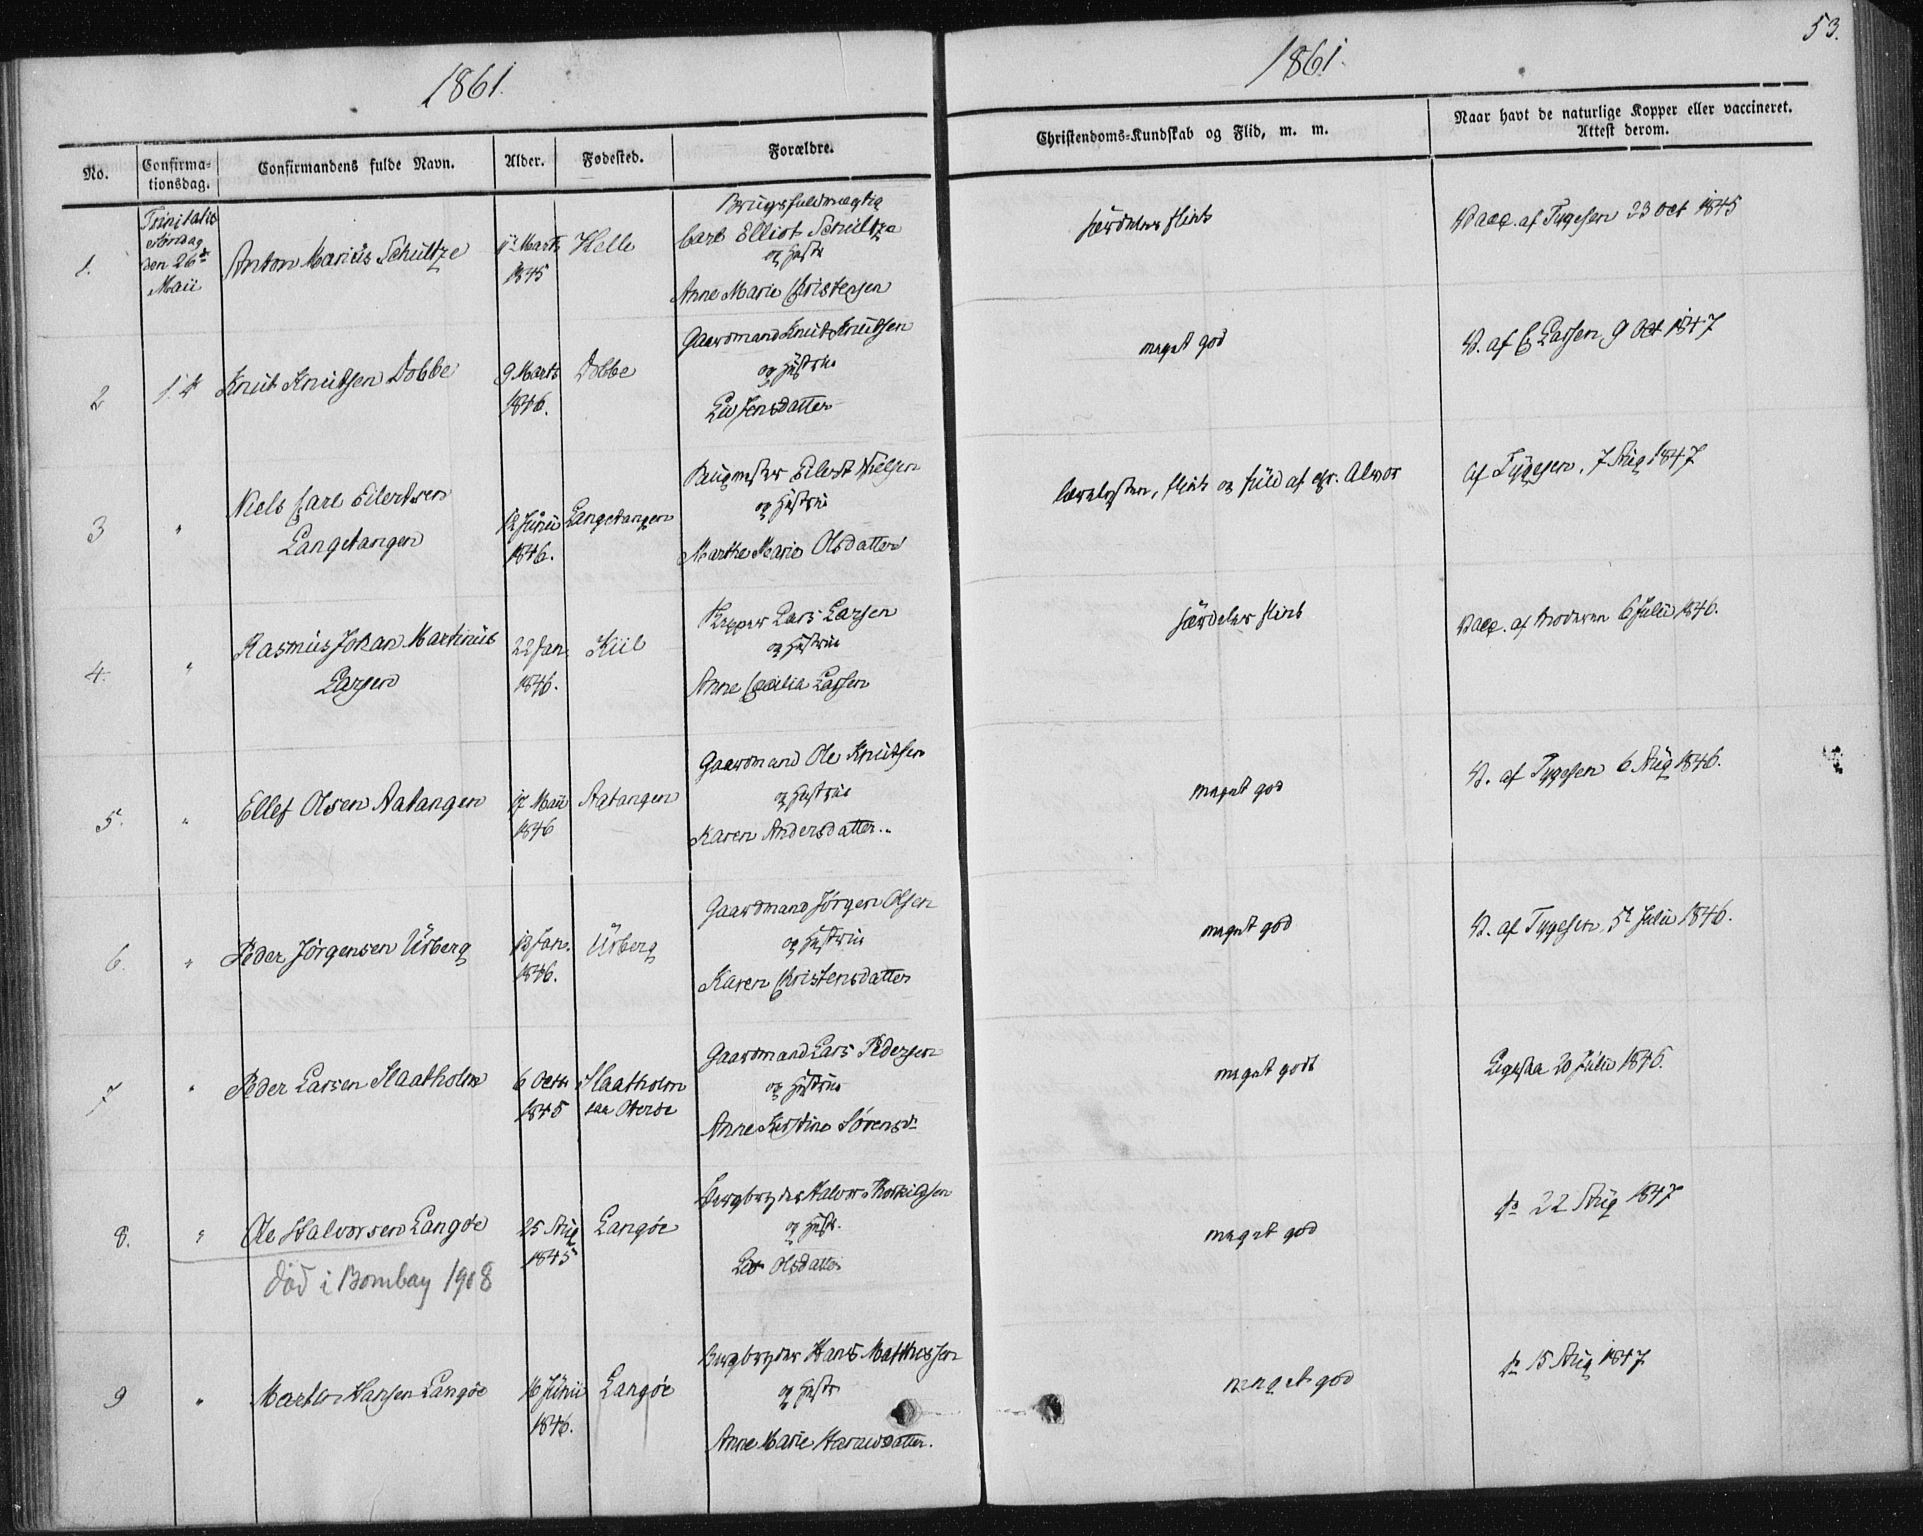 1861.
1861.
53.
No.
Confirma-
tionsdag.
Confirmandens fulde Navn.
Alder.
Fødested.
Forældre.
Christendoms-Kundskab og Flid, m. m.
Naar havt de naturlige Kopper eller vaccineret.
Attest derom.
1.
Trinitatis
Søndag
den 26de
Maii
Anton Marius Schultze
Marts
1845
Helle
Brugsfuldmægtig
Carl Elliot Schultze
og Hustr
Anne Marie Christensen
særdeles flink
Vacc. af Tygesen 23 Oct 1845
2
Knut Knutsen Dobbe
9 Marts
1846.
Dobbe
Gaardmand Knut Knutsen
og Hustrue
Liv Jensdatter
meget god
V. af C Lassen 9 Oct 1847
3
"
Niels Carl Eilertsen
Langetangen
12 Junii
1846.
Langetangen
Eilert Nielsen
og Hustrue
Marthe Marie Olsdatter
lærelysten, flink og fuld af chr. Alvor
af Tygesen, 7 Aug 1847
4.
"
Rasmus Johan Martinus
Larsen
22 Jan.
1846.
Kiil
Lars Larsen
og Hustrue
Anne Cecilia Larsen
særdeles flink
Vacc. af Moderen 6 Julii 1846.
5.
"
Ellef Olsen Aatangen
17 Maii
1846
Aatangen
Gaardmand Ole Knutsen
og Hustrue
Karen Andersdatter
meget god
V. af Tygesen 6 Aug 1846.
6.
"
Peder Jørgensen Urberg
13 Jan.
1846.
Urberg
Gaardmand Jørgen Olsen
og Hustrue
Karen Christensdatter
meget god
V. af Tygesen 5t Julii 1846.
7
"
Peder Larsen Slaatholm
6 Octr
1845
Slaatholm
Gaardmand Lars Pedersen
og Hustrue
Anne Kirstine Sørensd
meget godt
Ligesaa 20 Julii 1846.
8.
"
Ole Halvorsen Langøe
død i Bombay 1908
25 Aug
1845
Langøe
Bergbryder Halvor Thorkildsen
og Hustr.
Liv Olsdatter
meget god
do 22 Aug 1847
9
"
Martin Hansen Langøe
16 Junii
1846.
Langøe
Bergbryder Hans Matthissen
og Hustr
Anne Marie Haraldsdatter.
meget god
do 15 Aug 1847